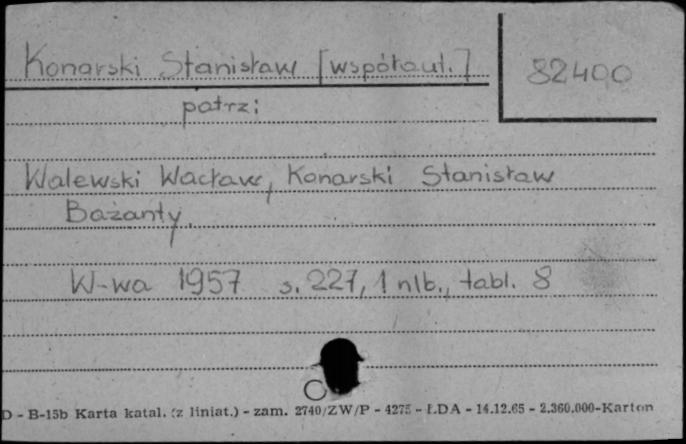 Konarski Stanisław [współaut.]
82400
patrz:
Walewski Wacław, Konarski Stanisław
Bażanty.
W-wa 1957 s. 227, 1 nlb., tabl. 8
D - B-15b Karta katal. (z liniat.) - zam. 2740/ZW/P - 4275 - LDA - 14.12.65 - 2.360.000-Karton